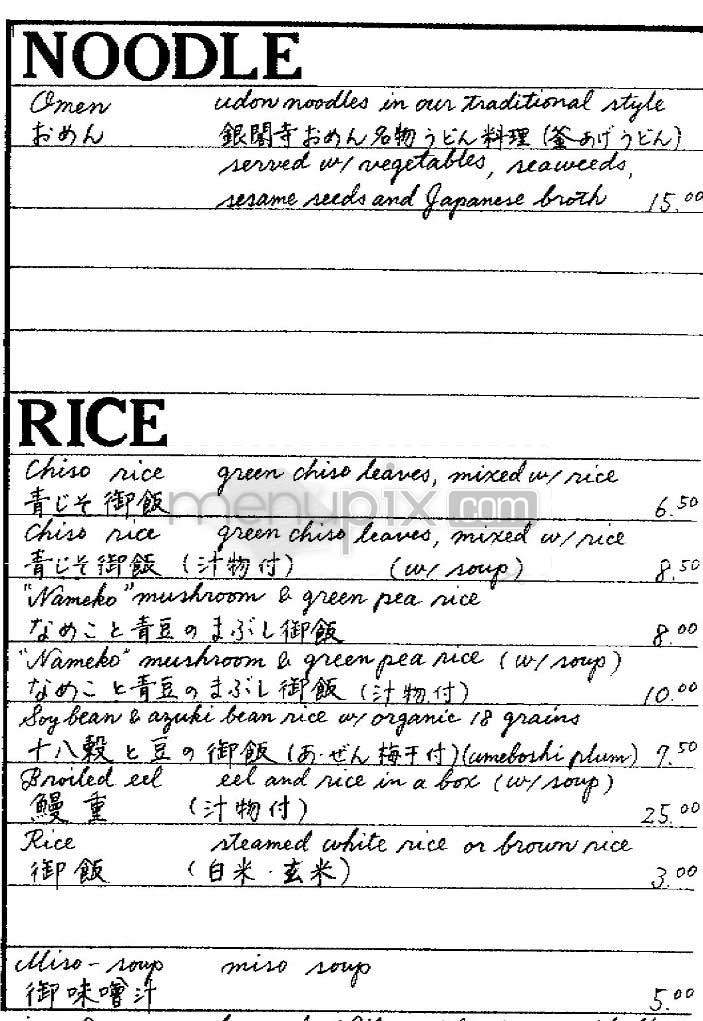 NOODLE
Omen udon noodles in our traditional style
おめん 銀閣寺おめん名物うどん料理(釜あげうどん)
served w/ vegetables, seaweeds,
sesame seeds and Japanese broth 15.00
RICE
Chiso rice green chiso leaves, mixed w/ rice
青じそ御飯 6.50
menupix.com
Chiso rice green chiso leaves, mixed w/ rice
青じそ御飯 (汁物付) (w/ soup) 8.50
"Nameko" mushroom & green pea rice
なめこと青豆のまぶし御飯 8.00
"Nameko" mushroom & green pea rice (w/ soup)
なめこと青豆のまぶし御飯 (汁物付) 10.00
Soybean & azuki bean rice w/ organic 18 grains
十八穀と豆の御飯 (あ・ぜん梅干付)(umeboshi plum) 7.50
Broiled eel eel and rice in a box (w/ soup)
鰻重 (汁物付) 25.00
Rice steamed white rice or brown rice
御飯 (白米・玄米) 3.00
Miso-soup miso soup
御味噌汁 5.00